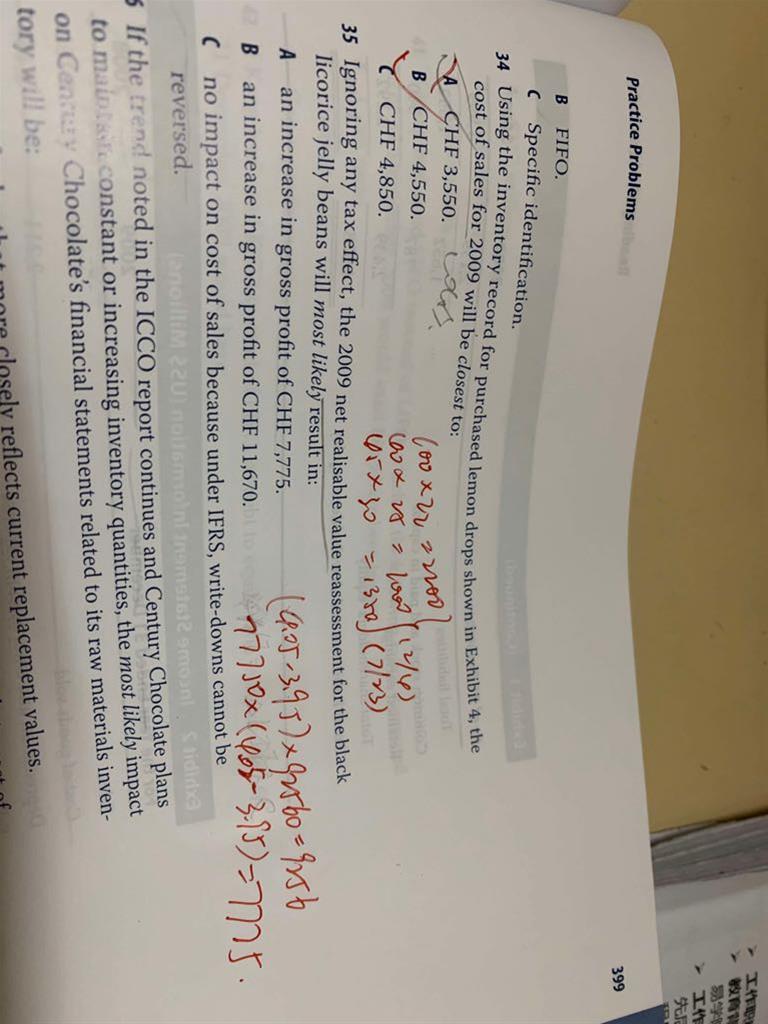 Practice Problems
399
B FIFO.
C Specific identification.
34 Using the inventory record for purchased lemon drops shown in Exhibit 4, the
cost of sales for 2009 will be closest to:
A CHF 3,550.
B CHF 4,550.
C CHF 4,850.
100 × 22 = 2200
= 1350 (7/23)
35 Ignoring any tax effect, the 2009 net realisable value reassessment for the black
licorice jelly beans will most likely result in:
A an increase in gross profit of CHF 7,775.
B an increase in gross profit of CHF 11,670.
C no impact on cost of sales because under IFRS, write-downs cannot be
reversed.
(4.05 - 3.95) × 92560 = 9256
77750 × (4.05 - 3.95) = 7775.
6 If the trend noted in the ICCO report continues and Century Chocolate plans
to maintain constant or increasing inventory quantities, the most likely impact
on Century Chocolate's financial statements related to its raw materials inven-
tory will be:
that more closely reflects current replacement values.